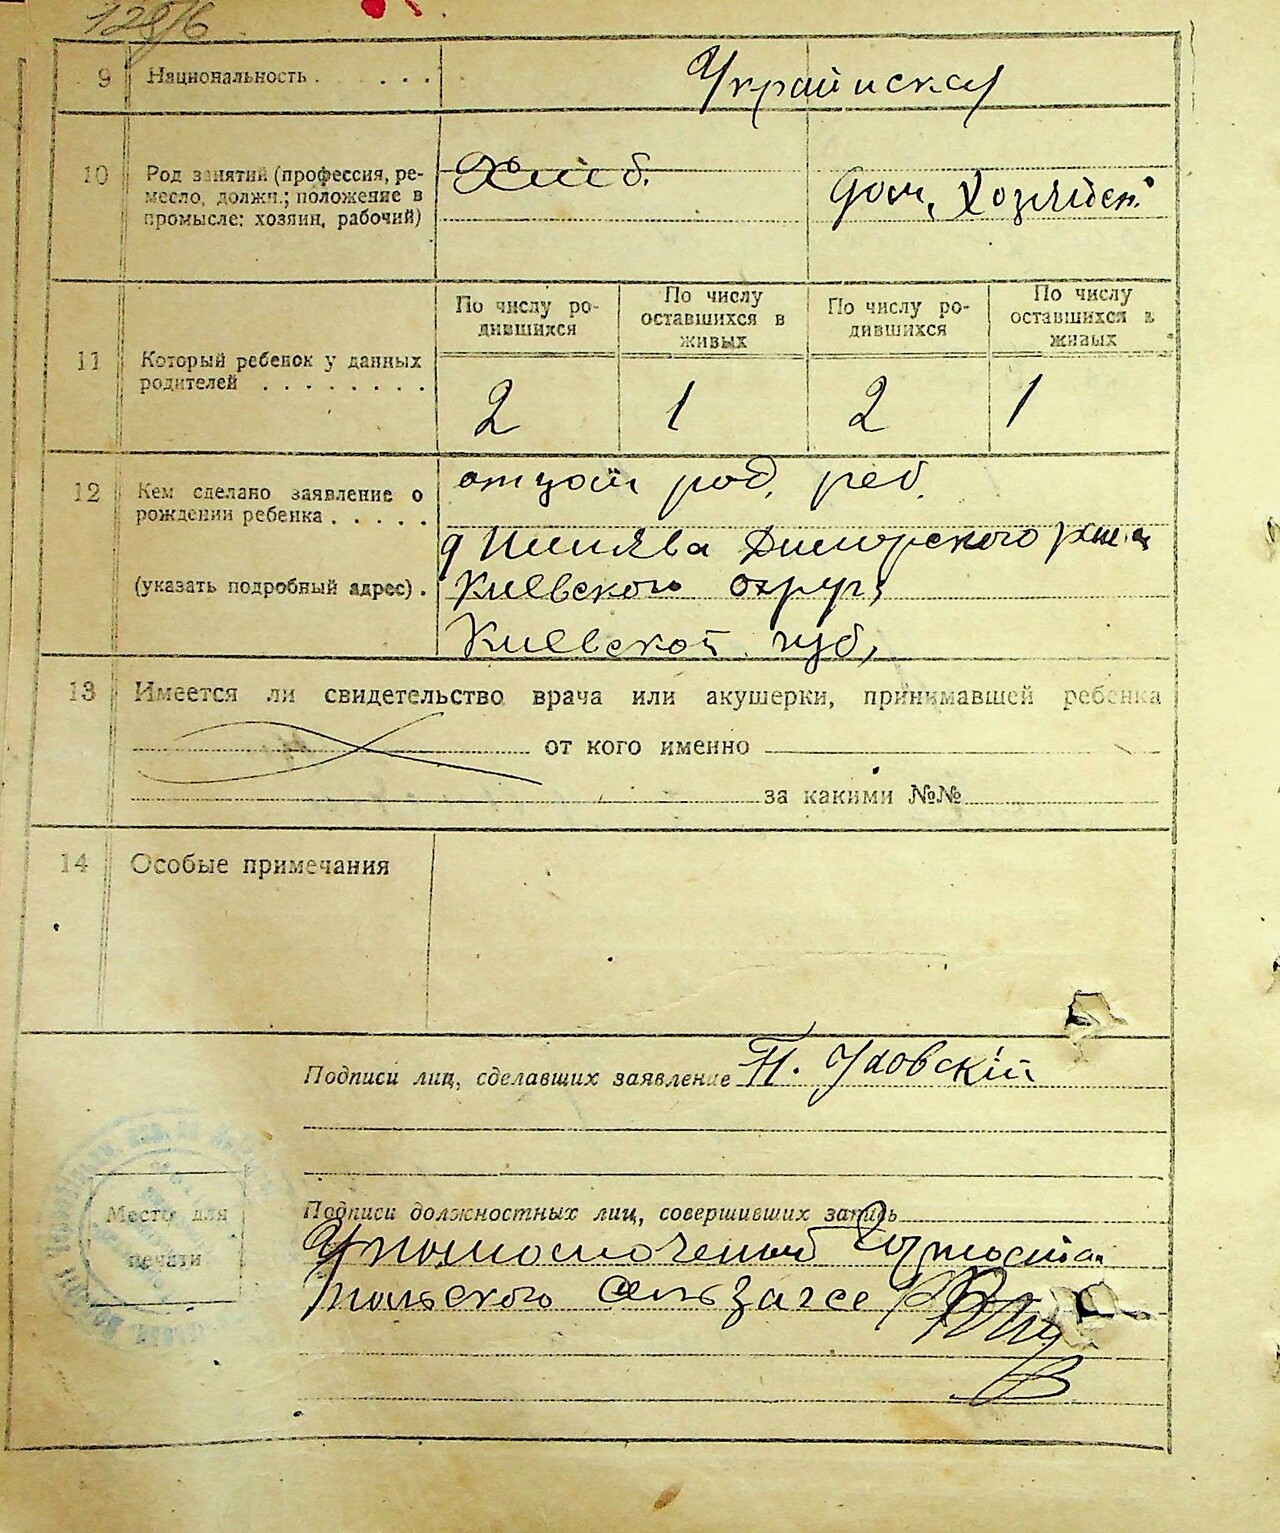 9 Национальность . . . . . Украинская
10 Род занятий (профессия, ре-
месло, должн.; положение в
промысле: хозяин, рабочий)
Хлеб.
Дом. Хозяйств.
По числу ро-
дившихся
По числу
оставшихся в
живых
По числу ро-
дившихся
По числу
оставшихся в
живых
11 Который ребенок у данных
родителей . . . . . . . .
2 1 2 1
12 Кем сделано заявление о
рождении ребенка . . . . .
(указать подробный адрес) .
отцом род. реб.
Димерского
Киевского округ.
Киевской губ,
13 Имеется ли свидетельство врача или акушерки, принимавшей ребенка
от кого именно
за какими №№
14 Особые примечания
Подписи лиц, сделавших заявление П. Уховский
Место для
печати
Подписи должностных лиц, совершивших запись
Уполномоченный